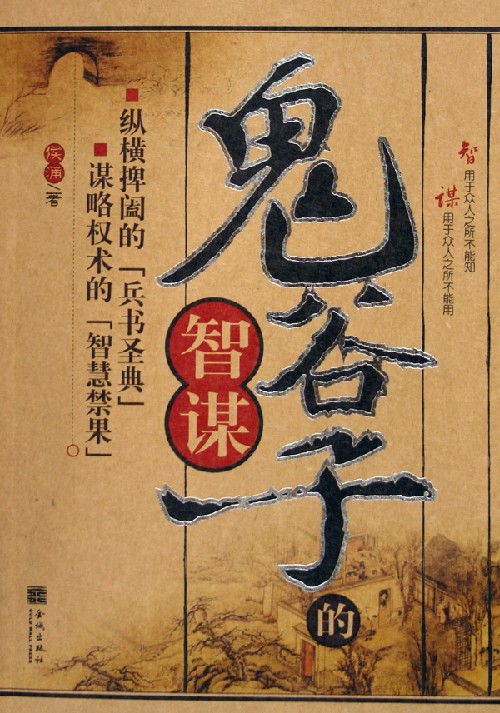 智用于众人之所不能知
谋用于众人之所不能用
鬼谷子的
智谋
纵横捭阖的「兵书圣典」
谋略权术的「智慧禁果」
侯 /著
金城出版社
GOLD WALL PRESS